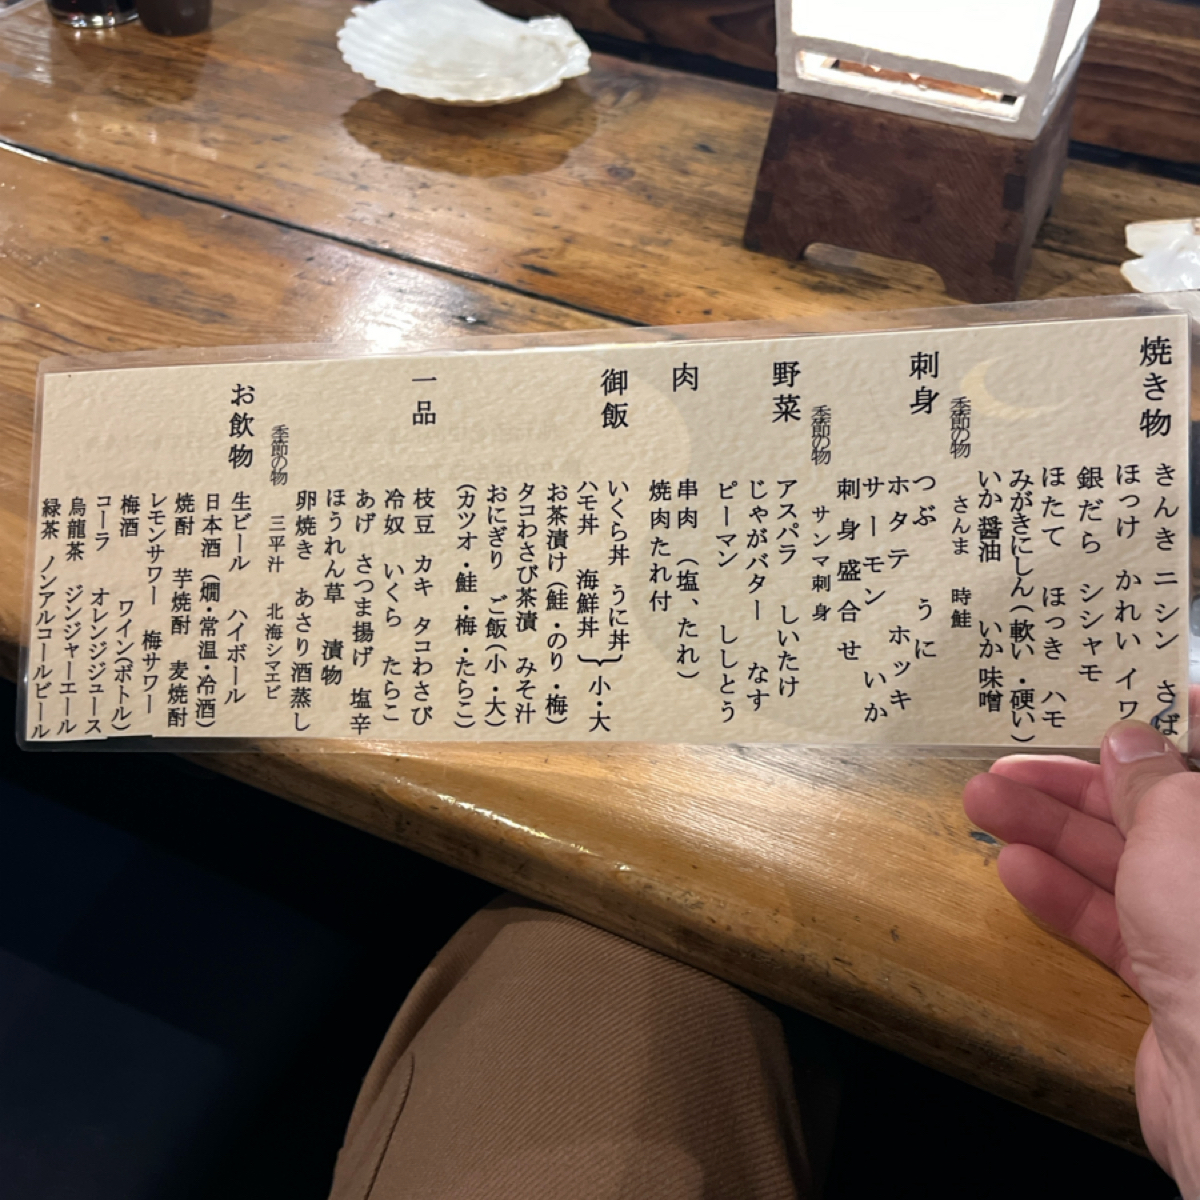 焼き物
きんき ニシン さば
ほっけ かれい イワ
銀だら シシャモ
ほたて ほっき ハモ
みがきにしん(軟い・硬い)
いか醤油 いか味噌
季節の物
さんま 時鮭
刺身
つぶ うに
ホタテ ホッキ
サーモン いか
刺身盛合せ
季節の物
サンマ刺身
野菜
アスパラ しいたけ
じゃがバター なす
ピーマン ししとう
肉
串肉 (塩、たれ)
焼肉たれ付
御飯
いくら丼 うに丼
ハモ丼 海鮮丼 } 小・大
お茶漬け(鮭・のり・梅)
タコわさび茶漬 みそ汁
おにぎり ご飯(小・大)
(カツオ・鮭・梅・たらこ)
一品
枝豆 カキ タコわさび
冷奴 いくら たらこ
あげ さつま揚げ 塩辛
ほうれん草 漬物
卵焼き あさり酒蒸し
季節の物
三平汁 北海シマエビ
お飲物
生ビール ハイボール
日本酒(燗・常温・冷酒)
焼酎 芋焼酎 麦焼酎
レモンサワー 梅サワー
梅酒 ワイン(ボトル)
コーラ オレンジジュース
烏龍茶 ジンジャーエール
緑茶 ノンアルコールビール